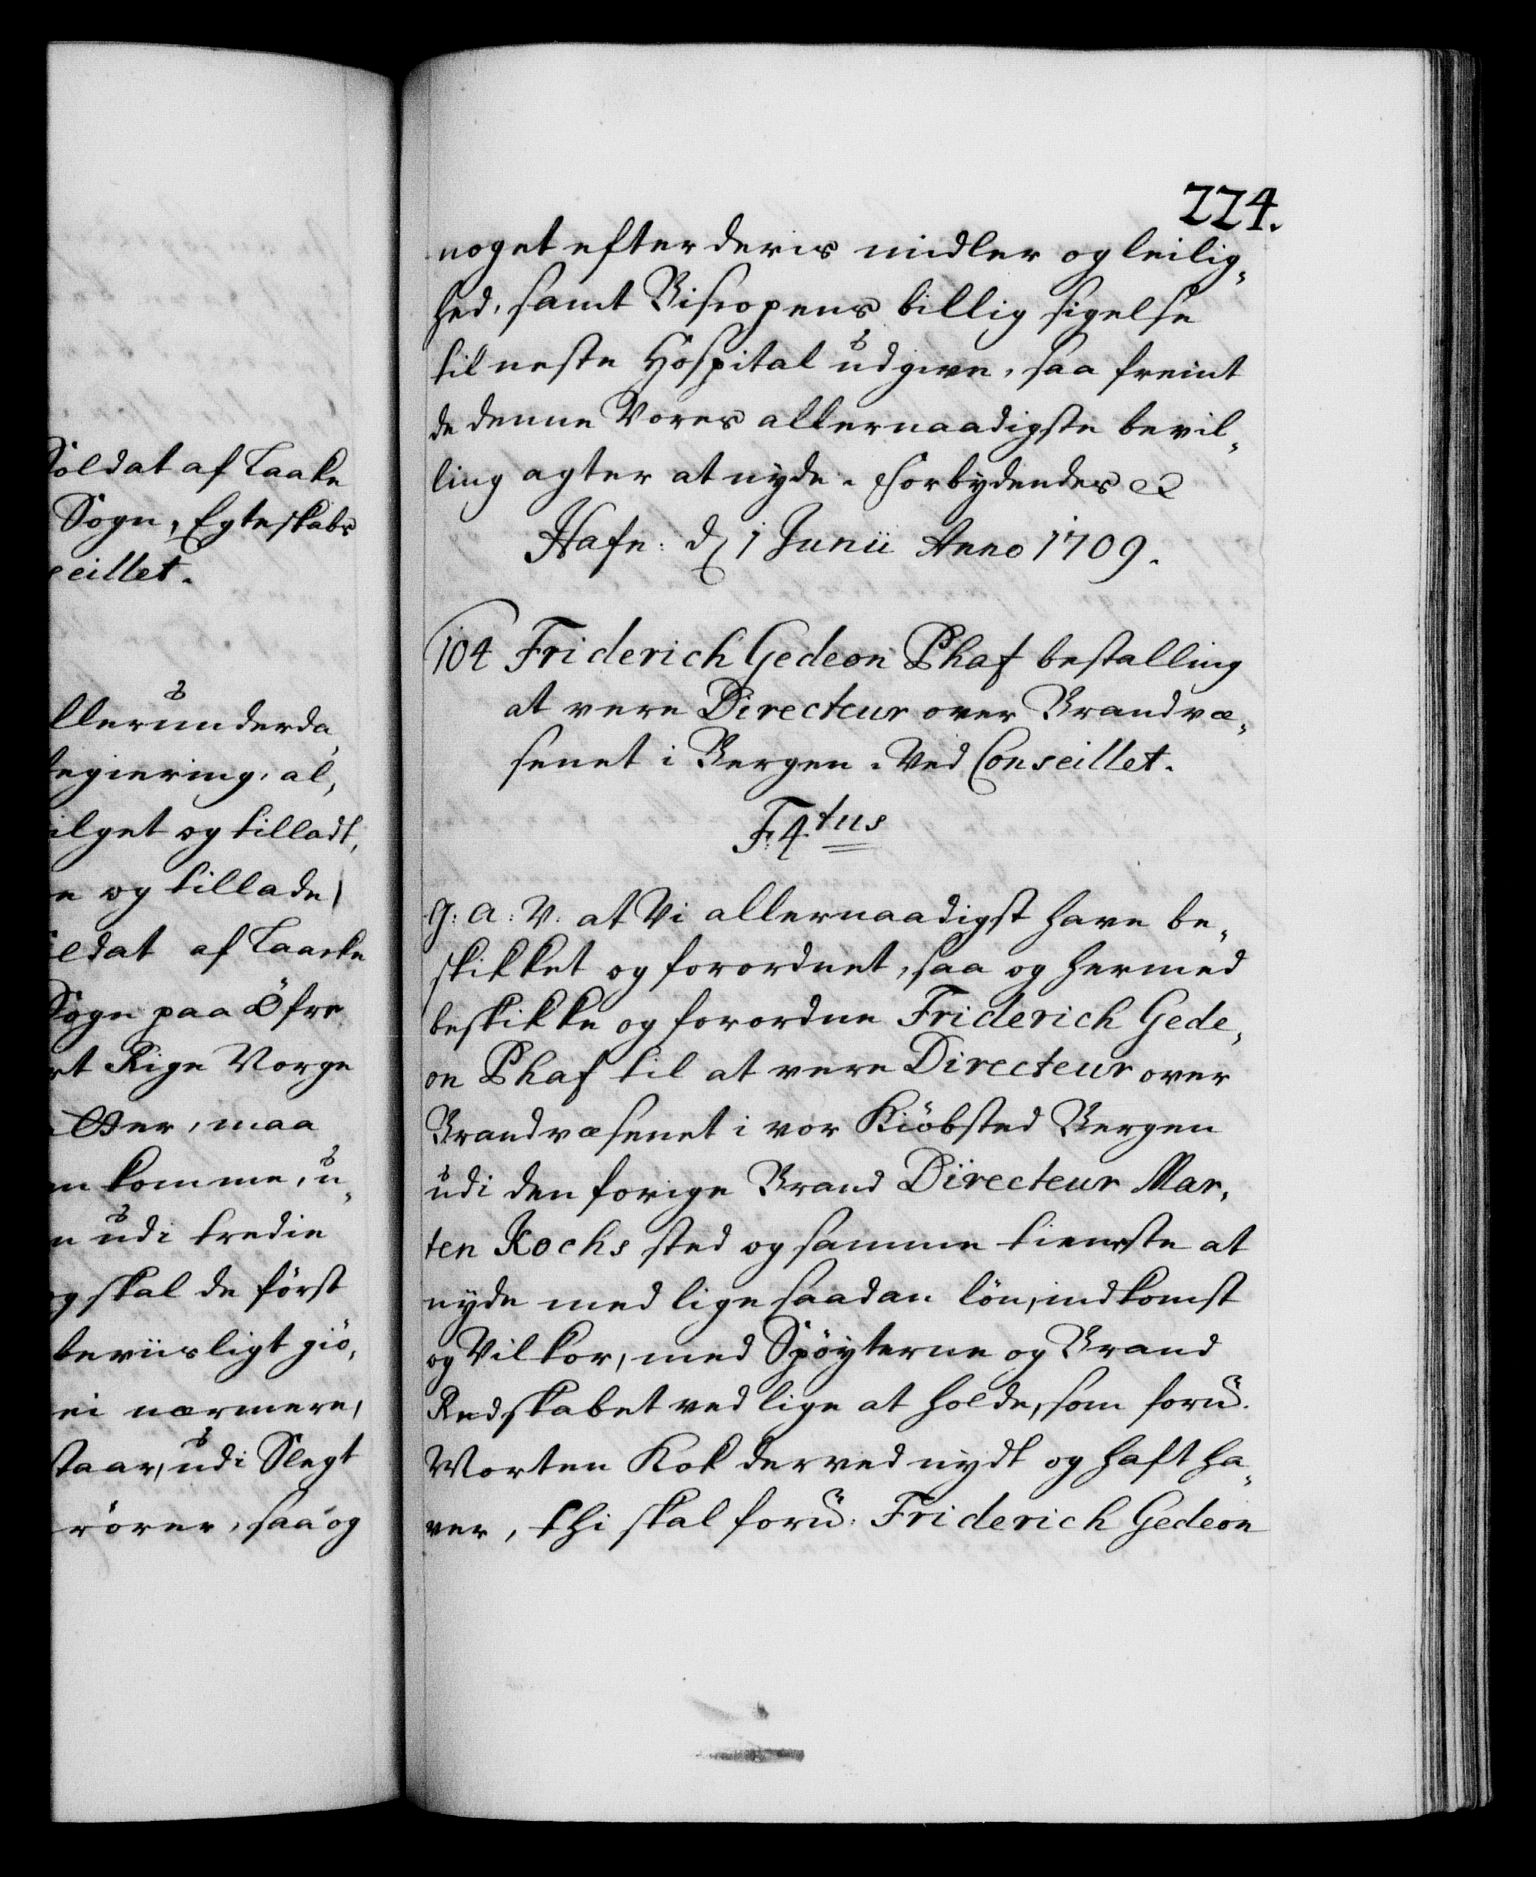 Soldat af Laake
Sogn, Egteskabs
eillet.
llerunderda
Regiering, al,
ilget og tilladt,
e og tillade
ldat af Laacke
Sogn paa Öfre
rt Rige Norge
etter, maa
en komme, u„
n udi tredie
g skal de först
beviisligt giö,
ei nærmere,
staar, udi Slegt
rörer, saa og
224.
noget efter deris midler og leilig„
hed, samt Biscopens billig sigelse
til neste Hospital udgive, saa freint
de denne Vores allernaadigste bevil„
ling agter at nyde. Forbydendes &
Hafn: d 1 Junii Anno 1709.
104 Friderich Gedeon Phaf bestalling
at vere Directeur over Brandvæ„
senet i Bergen. Ved Conseillet.
F. 4.tus
G: A: V. at Vi allernaadigst have be„
skikket og forordnet, saa og hermed
beskikke og forordne Friderich Gede„
on Phaf til at vere Directeur over
Brandvæsenet i vor Kiöbsted Bergen
udi den forige Brand Directeur Mar„
ten Kochs sted og samme tieneste at
nyde med lige saadan lön, indkomst
og Vilkor, med Spöyterne og Brand
Redskabet ved lige at holde, som foru.
Morten Kok derved nydt og haft ha„
ver, thi skal foru: Friderich Gedeon